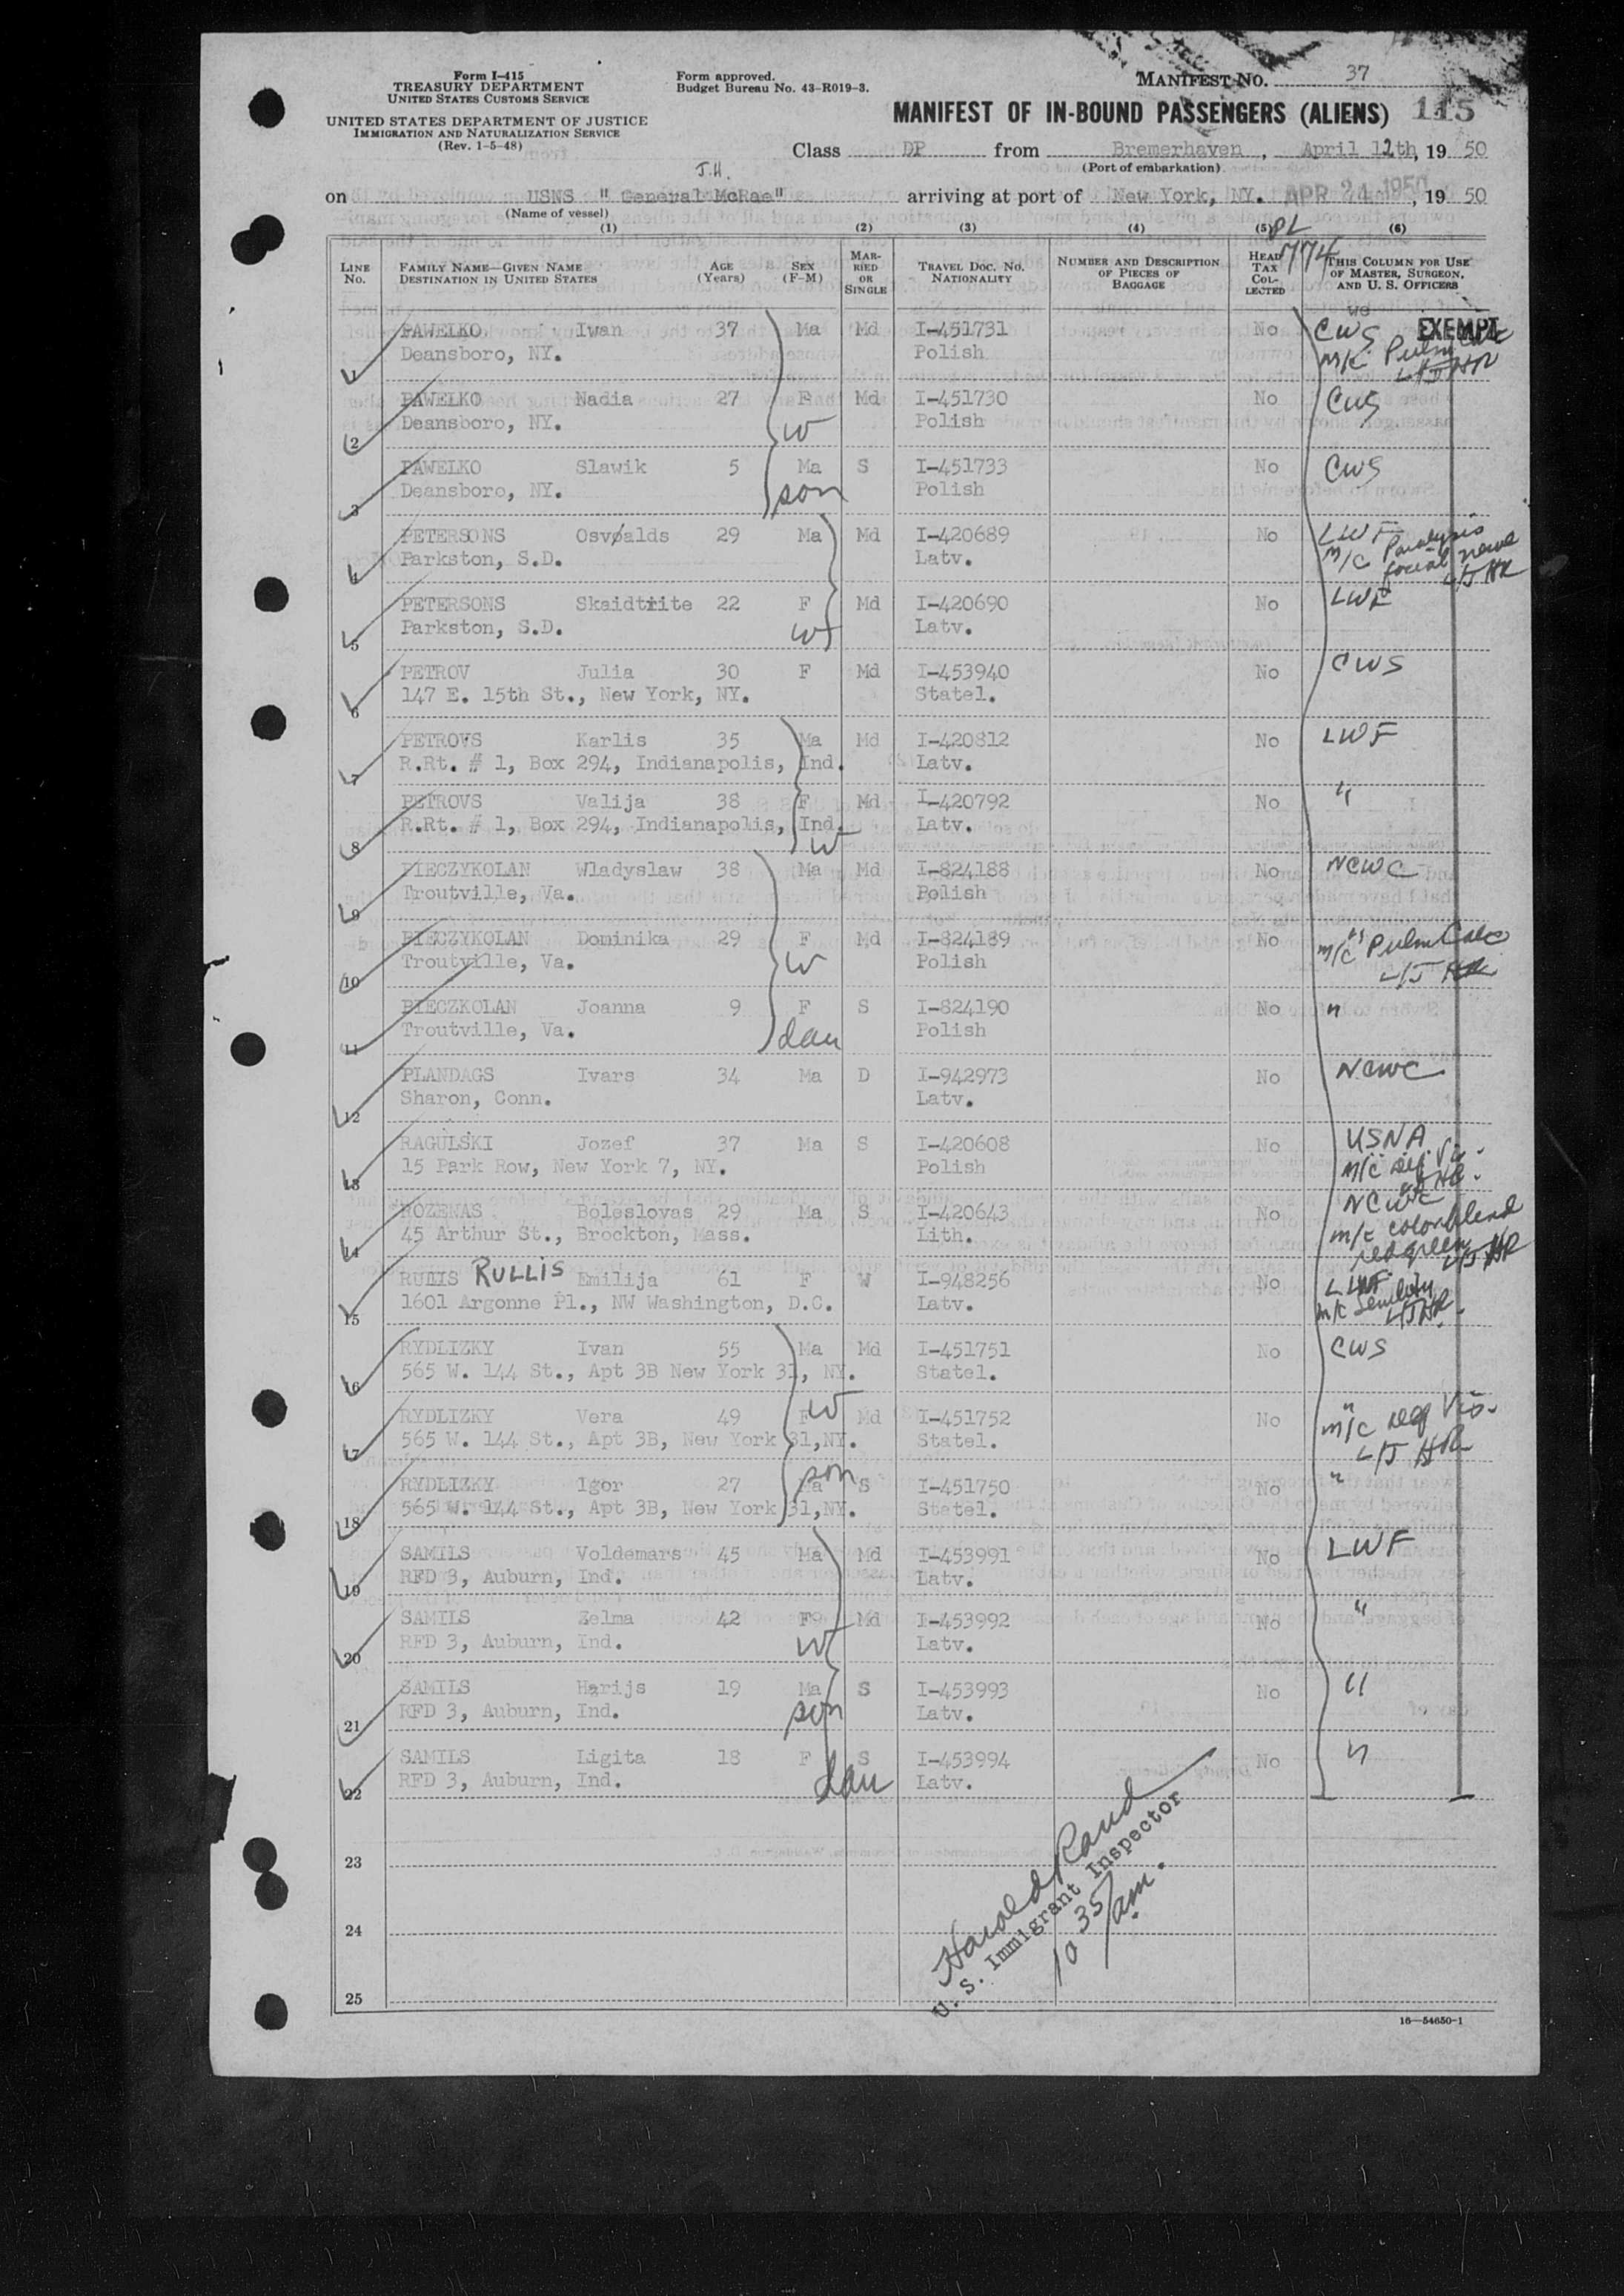 Form I-415
TREASURY DEPARTMENT
UNITED STATES CUSTOMS SERVICE
UNITED STATES DEPARTMENT OF JUSTICE
IMMIGRATION AND NATURALIZATION SERVICE
(Rev. 1-5-48)
Form approved.
Budget Bureau No. 43-R019-3.
MANIFEST NO. 37
MANIFEST OF IN-BOUND PASSENGERS (ALIENS) 115
Class DP from Bremerhaven, April 12th, 19 50
(Port of embarkation)
J.H.
on USNS "General McRae" arriving at port of New York, NY. APR 24 1950, 19 50
(Name of vessel)
(1) (2) (3) (4) (5) (6)
LINE No. FAMILY NAME—GIVEN NAME DESTINATION IN UNITED STATES AGE (Years) SEX (F-M) MARRIED OR SINGLE TRAVEL DOC. NO. NATIONALITY NUMBER AND DESCRIPTION OF PIECES OF BAGGAGE HEAD TAX COLLECTED THIS COLUMN FOR USE OF MASTER, SURGEON, AND U. S. OFFICERS
774
1 PAWELKO Iwan 37 Ma Md I-451731 No CWS EXEMPT
Deansboro, NY. Polish M/C Pulm Calc
L/J HR
2 PAWELKO Nadia 27 F Md I-451730 No CWS
Deansboro, NY. W Polish
3 PAWELKO Slawik 5 Ma S I-451733 No CWS
Deansboro, NY. son Polish
4 PETERSONS Osvalds 29 Ma Md I-420689 No LWF
Parkston, S.D. Latv. M/C Paralysis facial nerve
L/J HR
5 PETERSONS Skaidtrite 22 F Md I-420690 No LWF
Parkston, S.D. W Latv.
6 PETROV Julia 30 F Md I-453940 No CWS
147 E. 15th St., New York, NY. Statel.
7 PETROVS Karlis 35 Ma Md I-420812 No LWF
R.Rt. # 1, Box 294, Indianapolis, Ind. Latv.
8 PETROVS Valija 38 F Md I-420792 No "
R.Rt. # 1, Box 294, Indianapolis, Ind. W Latv.
9 PIECZYKOLAN Wladyslaw 38 Ma Md I-824188 No NCWC
Troutville, Va. Polish
10 PIECZYKOLAN Dominika 29 F Md I-824189 No "
Troutville, Va. W Polish M/C Pulm Calc
L/J HR
11 PIECZKOLAN Joanna 9 F S I-824190 No "
Troutville, Va. dau Polish
12 PLANDAGS Ivars 34 Ma D I-942973 No NCWC
Sharon, Conn. Latv.
13 RAGULSKI Jozef 37 Ma S I-420608 No USNA
15 Park Row, New York 7, NY. Polish M/C Def Vis.
14 ROZENAS Boleslovas 29 Ma S I-420643 No NCWC
45 Arthur St., Brockton, Mass. Lith. M/C colorblend red green
L/J HR
15 RULIS RULLIS Emilija 61 F W I-948256 No LWF
1601 Argonne Pl., NW Washington, D.C. Latv. M/C Senility
L/J HR.
16 RYDLIZKY Ivan 55 Ma Md I-451751 No CWS
565 W. 144 St., Apt 3B New York 31, NY. Statel.
17 RYDLIZKY Vera 49 F W Md I-451752 No "
565 W. 144 St., Apt 3B, New York 31,NY. Statel. M/C Def Vis.
L/J HR
18 RYDLIZKY Igor 27 Ma son S I-451750 No "
565 W. 144 St., Apt 3B, New York 31,NY. Statel.
19 SAMILS Voldemars 45 Ma Md I-453991 No LWF
RFD 3, Auburn, Ind. Latv.
20 SAMILS Zelma 42 F Md I-453992 No "
RFD 3, Auburn, Ind. W Latv.
21 SAMILS Harijs 19 Ma S I-453993 No "
RFD 3, Auburn, Ind. son Latv.
22 SAMILS Ligita 18 F S I-453994 No "
RFD 3, Auburn, Ind. dau Latv.
23
24
25
Harold Rand
U. S. Immigrant Inspector
10 35/am.
16—54650-1